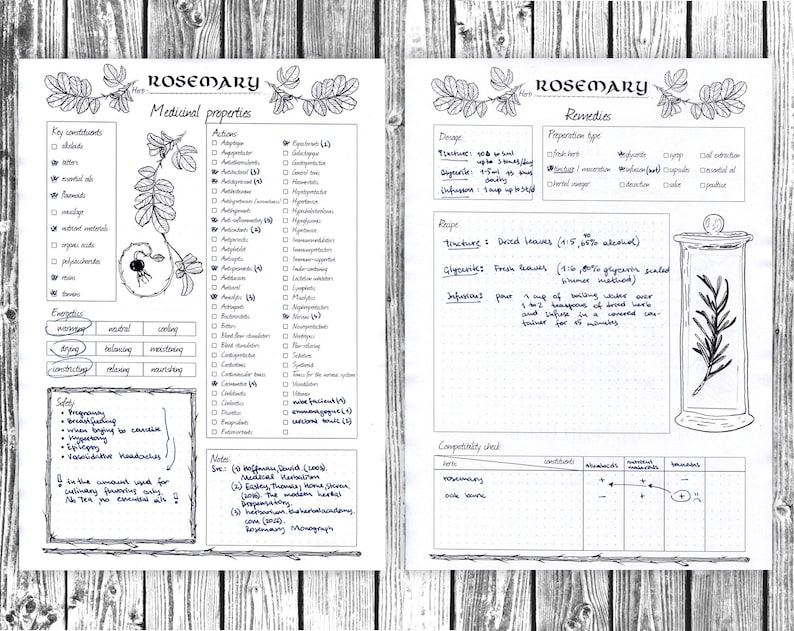 Herb: ROSEMARY
Medicinal properties
Key constituents
alkaloids
bitters
essential oils
flavonoids
mucilage
nutrient materials
organic acids
polysaccharides
resins
tannins
Energetics
warming neutral cooling
drying balancing moistening
constricting relaxing nourishing
Safety
• Pregnancy
• Breastfeeding
• when trying to conceive
• Hypertony
• Epilepsy
• Vasolidative headaches
!! in the amount used for
culinary flavoring only.
No Tea no essential oils !!
Actions
Adaptogen
Angioprotector
Antiatheromatics
Antibacterial (3)
Antidepressant (1)
Antihistamine
Antihypertensives
Antihypnotic
Anti-inflammatory (3)
Antioxidants (2)
Antiperiodic
Antiplatelet
Antiseptic
Antispasmodic (1)
Antitussive
Antiviral
Anxiolytic (3)
Astringents
Bacteriostatic
Bitters
Blood flow stimulators
Blood stimulators
Cardioprotective
Cardiotonic
Cardiovascular tonics
Carminative (1)
Cholekinetic
Choleretics
Diuretics
Emmenagogues
Expectorants (2)
Galactogogue
Gastroprotective
General tonic
Haemostatic
Hepatoprotective
Hypertensive
Hypocholesterolemics
Hypoglycemic
Hypotensive
Immunomodulators
Immunoprotective
Immuno-supportive
Insulin-containing
Lactation inhibitors
Lymphatic
Mucolytics
Nephroprotective
Nervine (1)
Neuroprotectants
Nootropics
Pain-relieving
Sedatives
Synthroid
Tonics for the nervous system
Vasodilators
Vitamins
rubefacient (1)
emmenagogue (1)
cerebral tonic (2)
Notes
Src.: (1) Hoffman, David. (2003).
Medical Herbalism
(2) Easley, Thomas, Horne, Steven.
(2016). The modern herbal
Dispensatory.
(3) herbarium.theherbalacademy.
com (2022).
Rosemary Monograph
Herb: ROSEMARY
Remedies
Dosage
Tincture: to 5ml
up to 3 times/day
Glycerite: 1-5 ml
daily
Infusion: 1 cup up to
Preparation type
fresh herb glycerite syrup oil extraction
tincture / maceration infusion (hot) capsules essential oil
herbal vinegar decoction salve poultice
Recipe
Tincture: Dried leaves (1:5, 65% alcohol)
40
Glycerite: Fresh leaves (1:6, 80% glycerin sealed
simmer method)
Infusion: pour 1 cup of boiling water over
1 to 2 teaspoons of dried herb
and infuse in a covered con-
tainer for 15 minutes
Compatibility check
herb constituents alkaloids nutrient materials tannins
rosemary + + -
oak barne - + +